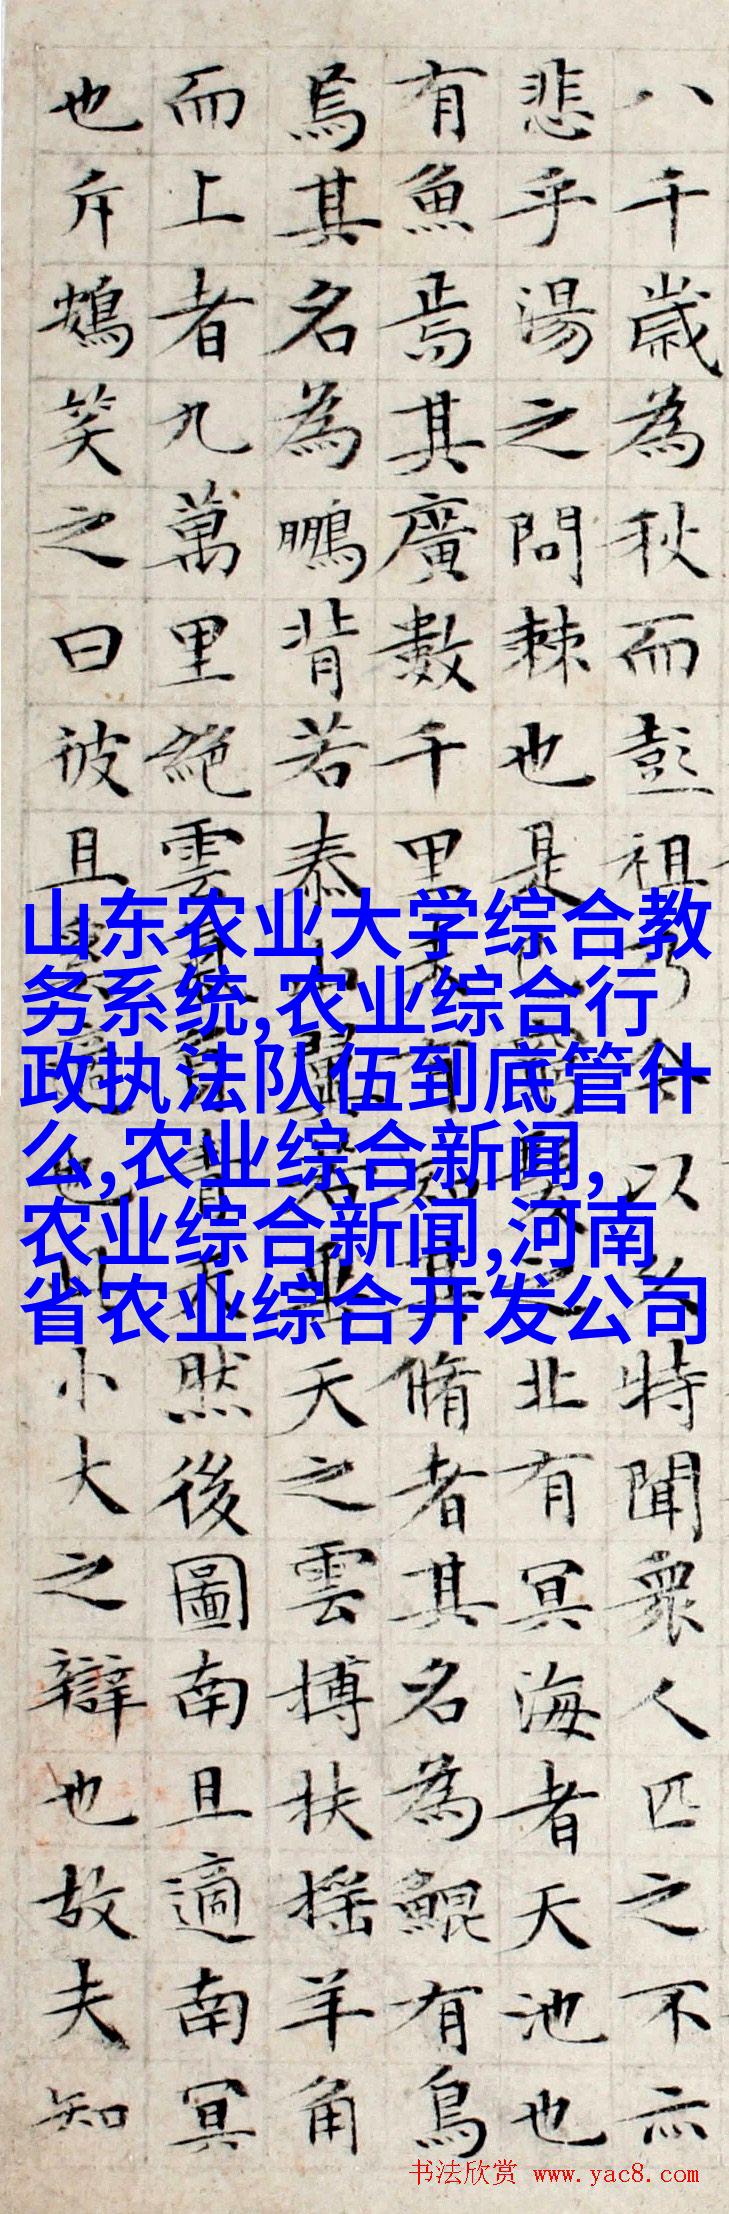 八千歲為秋而彭祖乃今以久特聞衆人匹之不亦
悲乎湯之問棘也是已窮髮之北有冥海者天池也
有魚焉其廣數千里未有知其脩者其名為鯤有鳥
焉其名為鵬背若泰山翼若垂天之雲搏扶搖羊角
而上者九萬里絕雲氣負青天然後圖南且適南冥
也斥鴳笑之曰彼且奚適也此小大之辯也故夫知
山东农业大学综合教
务系统,农业综合行
政执法队伍到底管什
么,农业综合新闻,
农业综合新闻,河南
省农业综合开发公司
书法欣赏 www.yac8.com